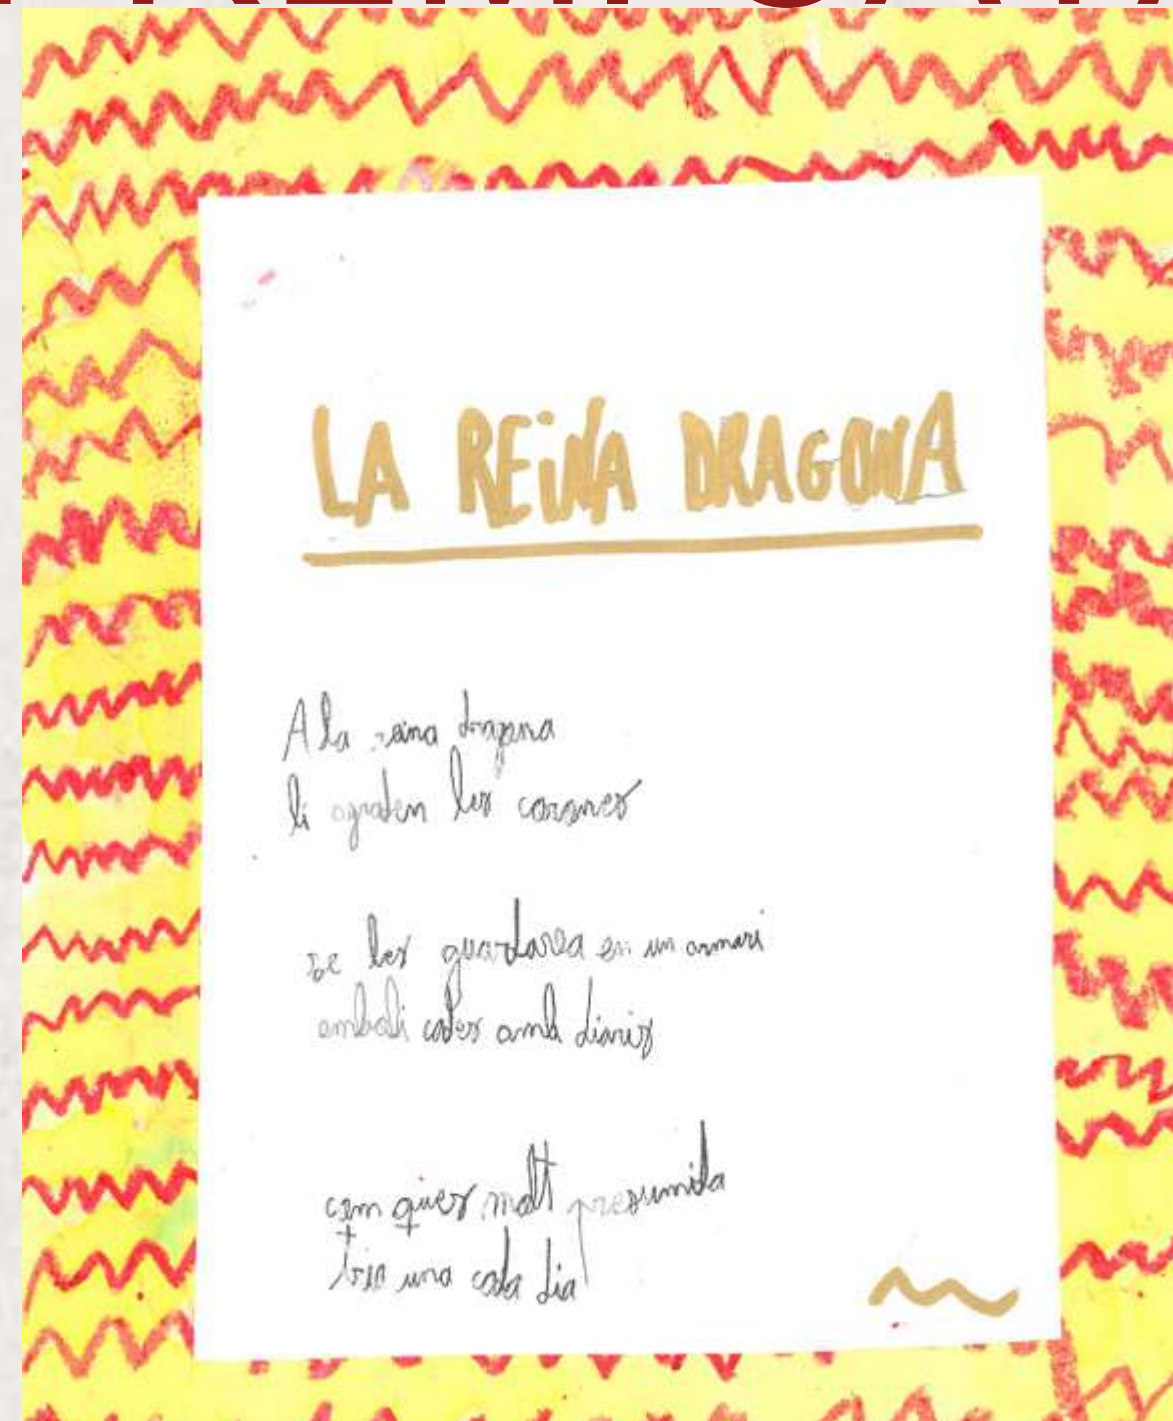 LA REiNA DRAGONA
A la reina dragona
li agraden les corones
se les guardarea en un armari
emboli cades amb diaris
com ques molt presumida
tria una cada dia